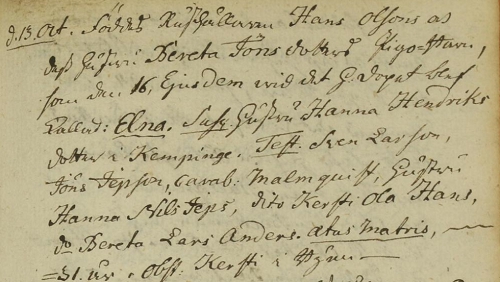 d. 13. Oct. Föddes Rusthållaren Hans Olsons och
dess Hustru Bereta Jöns dotters Piga-Barn,
som den 16. Ejusdem wid det H. Dopet blef
kallad: Elna. Susc. Hustru Hanna Hendriks
dotter i Kempinge. Test. Sven Larson,
Jöns Jepson, Carab: Malmquist, Hustru
Hanna Nils Jeps, dito Kersti Ola Hans,
do Bereta Lars Anders. ætas Matris,
= 31. år. Obst. Kersti i